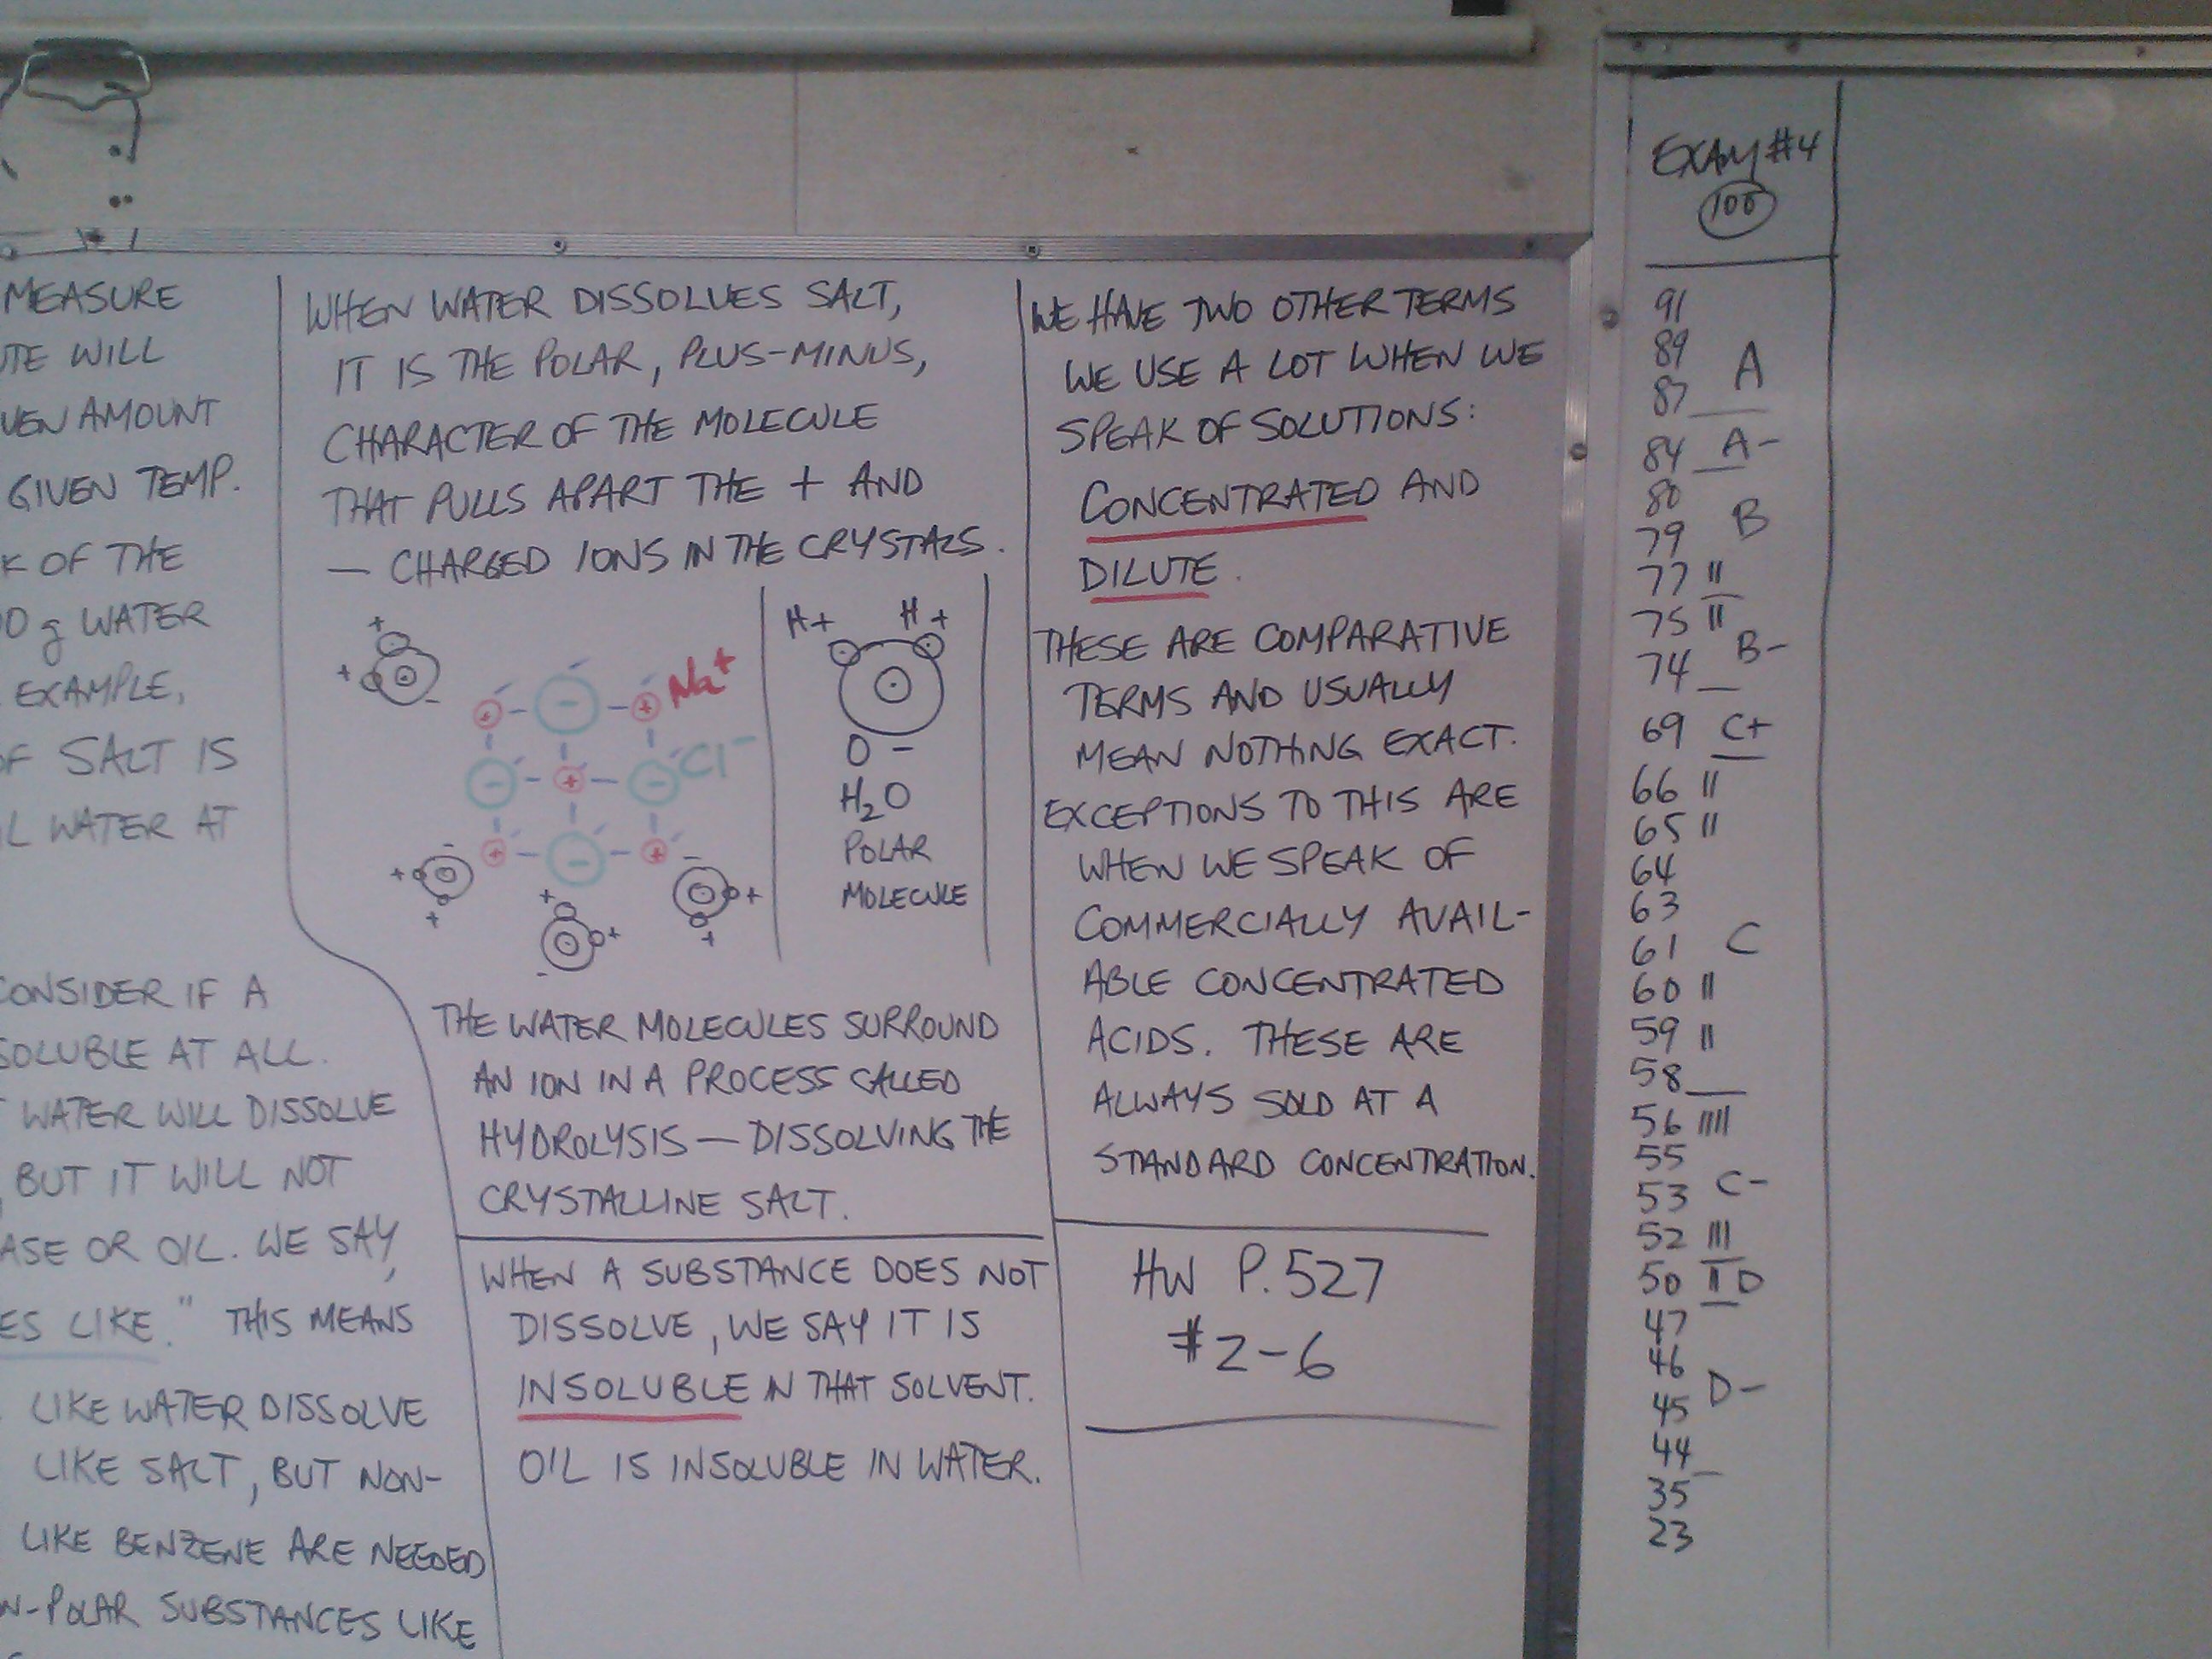 MEASURE
WILL
AMOUNT
GIVEN TEMP.
OF THE
g WATER
EXAMPLE,
OF SALT IS
WATER AT
CONSIDER IF A
SOLUBLE AT ALL.
WATER WILL DISSOLVE
BUT IT WILL NOT
OR OIL. WE SAY,
LIKE." THIS MEANS
LIKE WATER DISSOLVE
LIKE SALT, BUT NON-
LIKE BENZENE ARE NEEDED
-POLAR SUBSTANCES LIKE
WHEN WATER DISSOLVES SALT,
IT IS THE POLAR, PLUS-MINUS,
CHARACTER OF THE MOLECULE
THAT PULLS APART THE + AND
— CHARGED IONS IN THE CRYSTALS.
Na+
Cl-
H+ H+
O -
H2O
POLAR
MOLECULE
THE WATER MOLECULES SURROUND
AN ION IN A PROCESS CALLED
HYDROLYSIS — DISSOLVING THE
CRYSTALLINE SALT.
WHEN A SUBSTANCE DOES NOT
DISSOLVE, WE SAY IT IS
INSOLUBLE IN THAT SOLVENT.
OIL IS INSOLUBLE IN WATER.
WE HAVE TWO OTHER TERMS
WE USE A LOT WHEN WE
SPEAK OF SOLUTIONS:
CONCENTRATED AND
DILUTE.
THESE ARE COMPARATIVE
TERMS AND USUALLY
MEAN NOTHING EXACT.
EXCEPTIONS TO THIS ARE
WHEN WE SPEAK OF
COMMERCIALLY AVAIL-
ABLE CONCENTRATED
ACIDS. THESE ARE
ALWAYS SOLD AT A
STANDARD CONCENTRATION.
HW P.527
#2-6
EXAM #4
100
91
89 A
87
84 A-
80
79 B
77 ||
75 ||
74 B-
69 C+
66 ||
65 ||
64
63
61 C
60 ||
59 ||
58
56 ||||
55
53 C-
52 |||
50 || D
47
46
45 D-
44
35
23